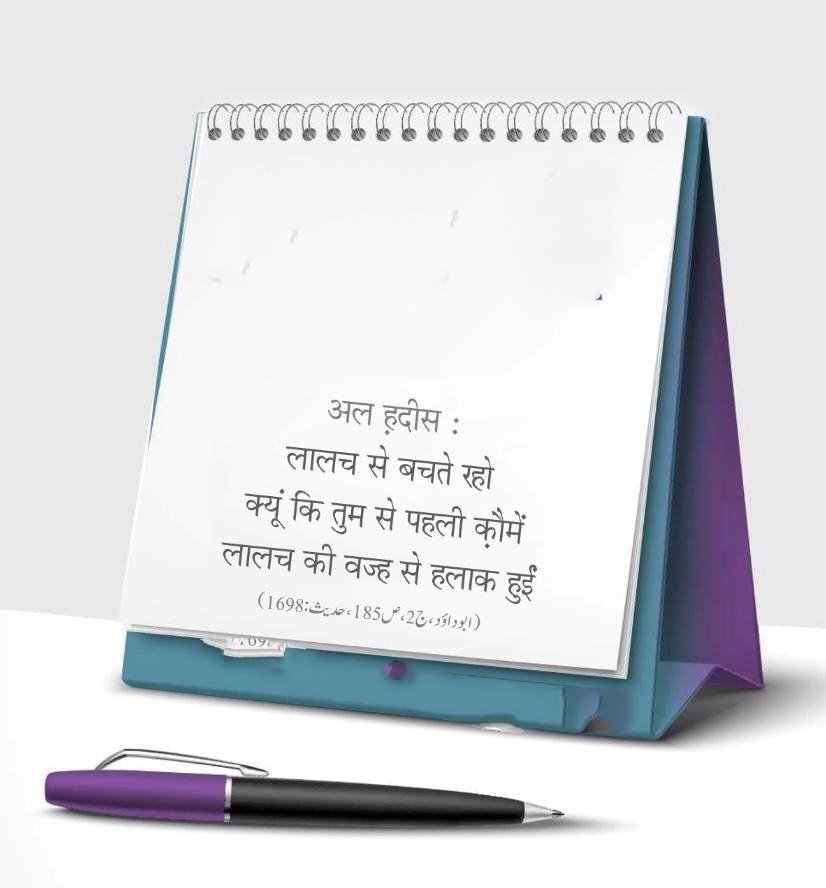 अल ह़दीस :
लालच से बचते रहो
क्यूं कि तुम से पहली क़ौमें
लालच की वज्ह से हलाक हुईं
(ابوداؤد،ج2،ص185،حدیث:1698)